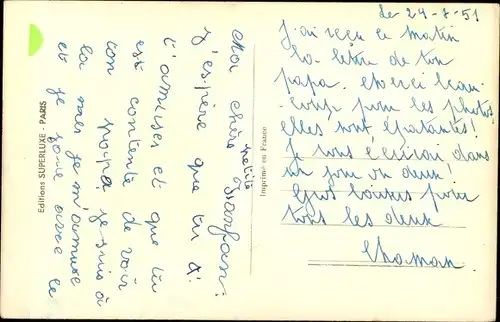 le 24-7-51
Ma chère petite
j'espère que tu
t'amuses et que tu
est contente de voir
ton papa. je suis à
la mer je m'amuse
et je joue avec le
J'ai reçu ce matin
la lettre de ton
papa. Merci beau-
coup pour les photos,
elles sont épatantes!
Je vous écrirai dans
un jour ou deux!
Gros baisers pour
tous les deux
Maman.
Editions SUPERLUXE - PARIS
Imprimé en France